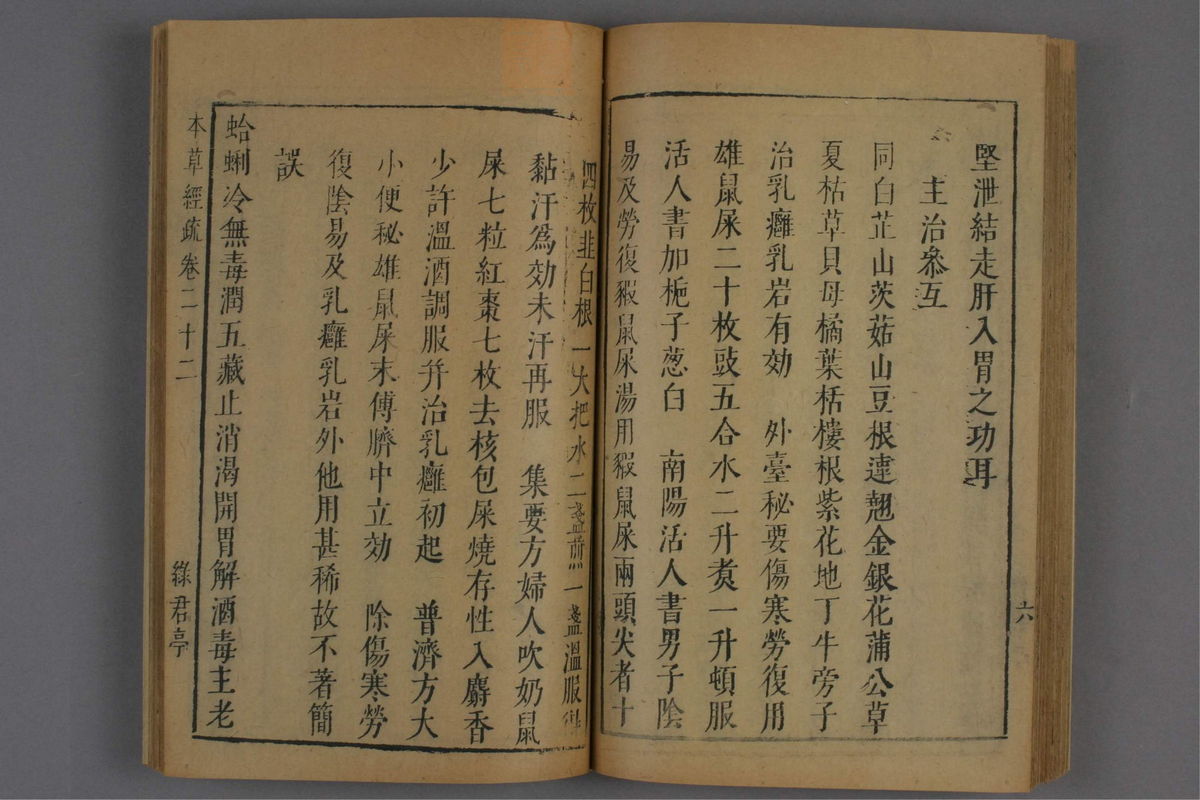 六
堅泄結走肝入胃之功耳
主治參互
同白芷山茨菇山豆根連翹金銀花蒲公草
夏枯草貝母橘葉栝樓根紫花地丁牛旁子
治乳癰乳岩有効　外臺秘要傷寒勞復用
雄鼠屎二十枚豉五合水二升煑一升頓服
活人書加梔子葱白　南陽活人書男子陰
易及勞復豭鼠屎湯用豭鼠屎兩頭尖者十
四枚韭白根一大把水二盞煎一盞溫服得
黏汗爲効未汗再服　集要方婦人吹奶鼠
屎七粒紅棗七枚去核包屎燒存性入麝香
少許溫酒調服幷治乳癰初起　普濟方大
小便秘雄鼠屎末傅臍中立効　除傷寒勞
復陰易及乳癰乳岩外他用甚稀故不著簡
誤
蛤蜊冷無毒潤五藏止消渴開胃解酒毒主老
本草經疏卷二十二
綠君亭